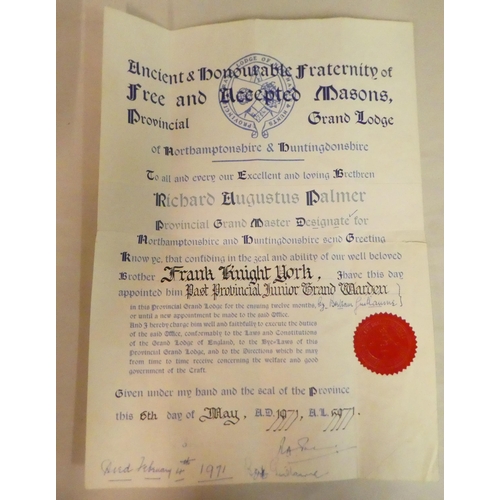 Ancient & Honourable Fraternity of
Free and Accepted Masons,
Provincial Grand Lodge
of Northamptonshire & Huntingdonshire
To all and every our Excellent and loving Brethren
Richard Augustus Palmer
Provincial Grand Master Designate for
Northamptonshire and Huntingdonshire send Greeting
Know ye, that confiding in the zeal and ability of our well beloved
Brother Frank Knight York, I have this day
appointed him Past Provincial Junior Grand Warden
in this Provincial Grand Lodge for the ensuing twelve months,
or until a new appointment be made to the said Office.
And I hereby charge him well and faithfully to execute the duties
of the said Office, conformably to the Laws and Constitutions
of the Grand Lodge of England, to the Bye-Laws of this
Provincial Grand Lodge, and to the Directions which he may
from time to time receive concerning the welfare and good
government of the Craft.
Given under my hand and the seal of the Province
this 6th day of May, A.D. 1971, A.L. 5971.
February 1971